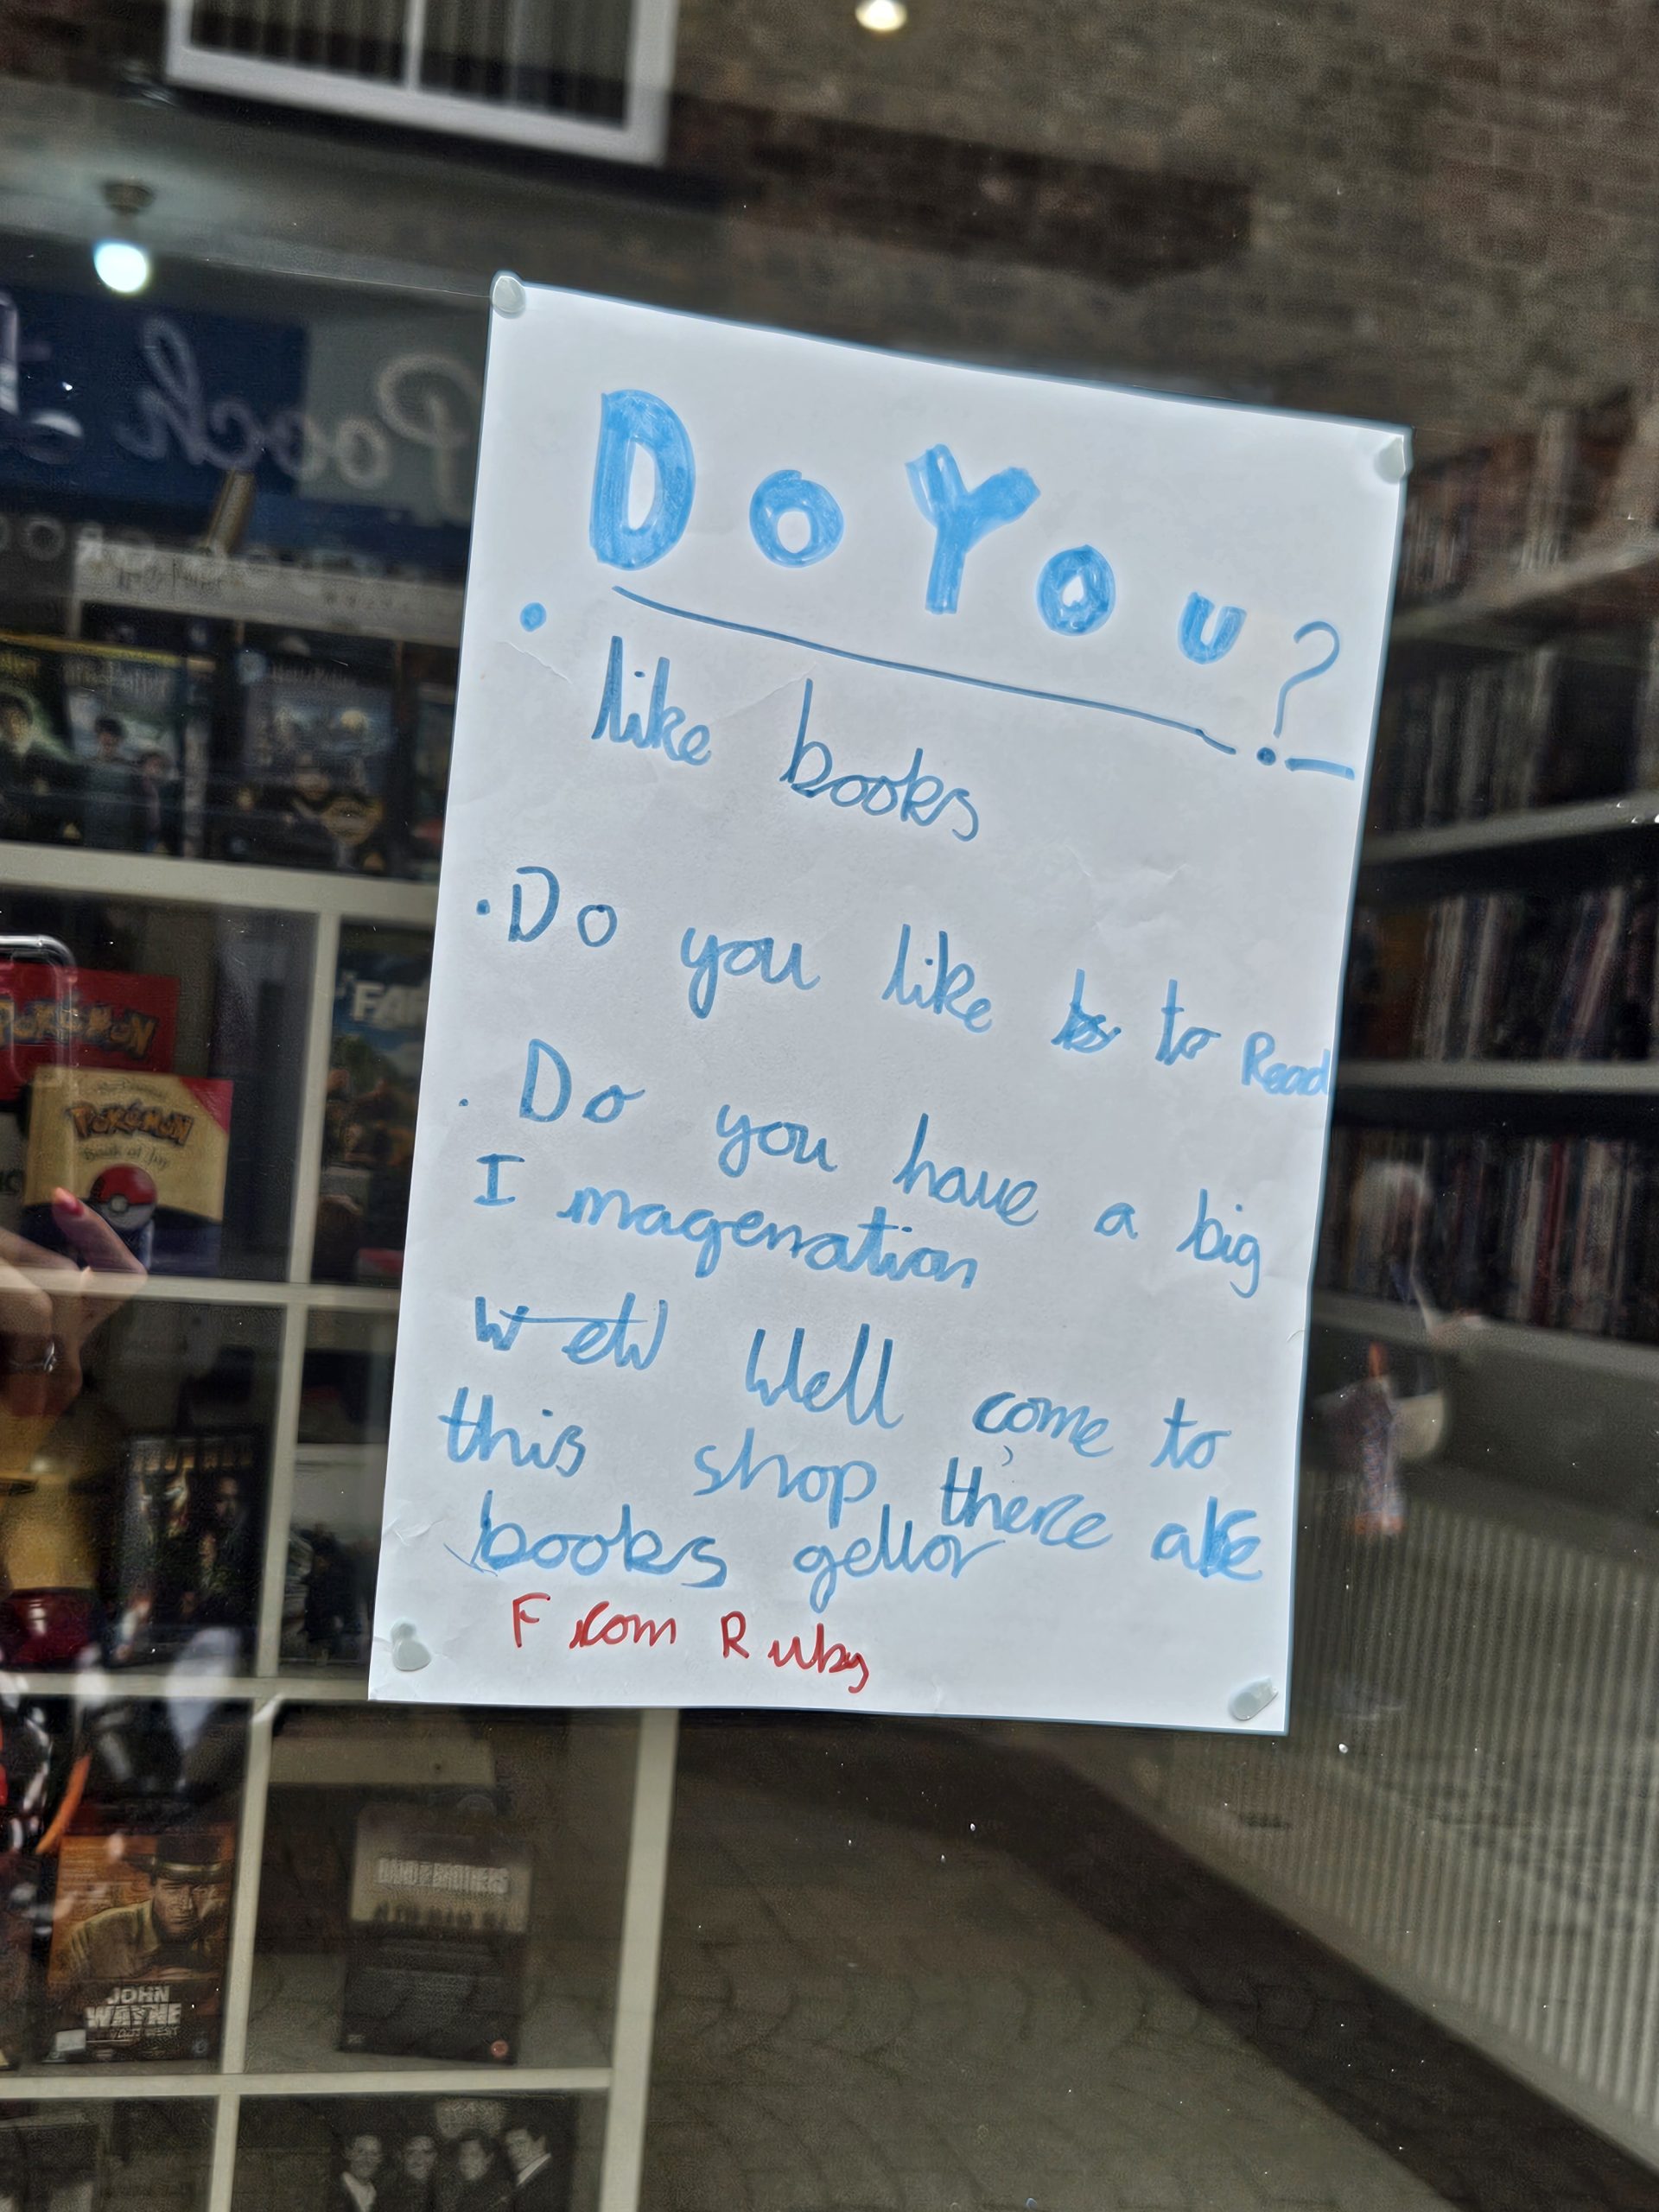 Do You?
• like books
• Do you like to Read
• Do you have a big
Imagenation
Well come to
this shop there are
books gellor
From Ruby
Pooch
POKÉMON
POKÉMON
Book of Joy
FAR
BAND OF BROTHERS
JOHN
WAYNE